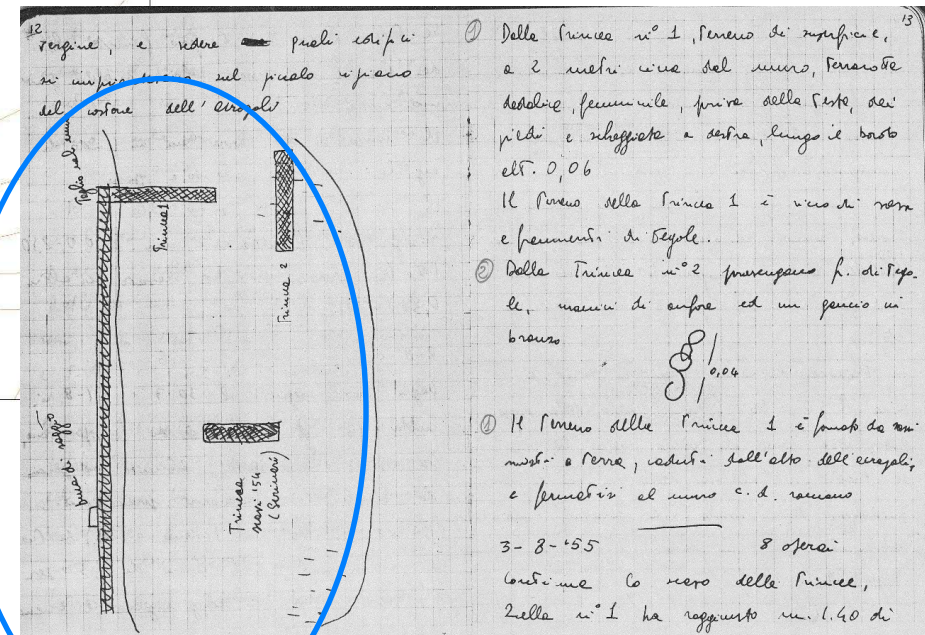 12
vergine, e vedere quali edifici
si impiantarono sul piccolo ripiano
del costone dell'acropoli
Taglio nel muro
Trincea 1
Trincea 2
buca di saggio
Trincea
scavi '54
(Scrinari)
13
① Dalla Trincea n° 1, terreno di superficie,
a 2 metri circa dal muro, terracotta
dedalica, femminile, priva della testa, dei
piedi e scheggiata a destra, lungo il bordo
alt. 0,06
Il terreno della Trincea 1 è ricco di sassi
e frammenti di tegole.
② Dalla Trincea n° 2 provengono f. di tego-
le, manici di anfore ed un gancio in
bronzo
0,04
① Il terreno della Trincea 1 è formato da sassi
misti a terra, caduti dall'alto dell'acropoli,
e fermatisi al muro c.d. romano
3-8-'55 8 operai
Continua lo scavo delle Trincee,
Quella n° 1 ha raggiunto m. 1.40 di